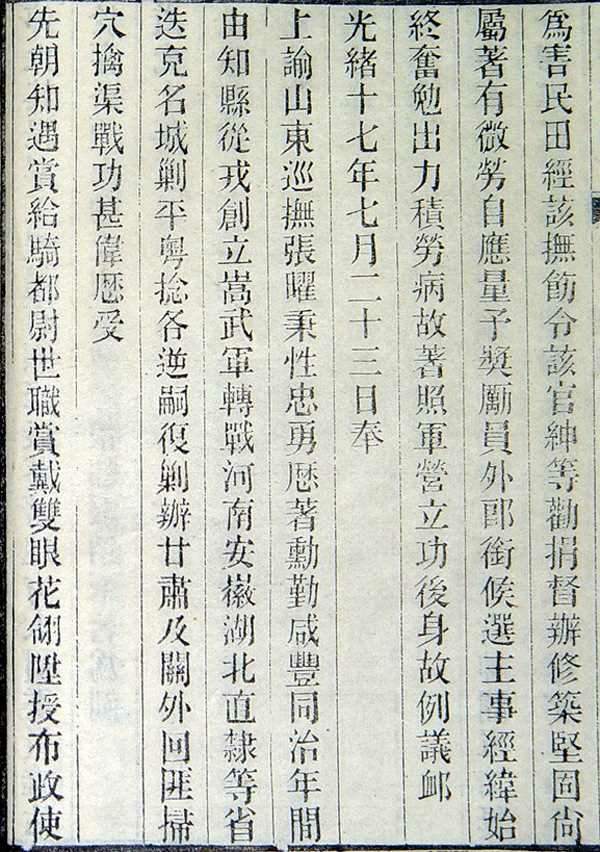 爲害民田經該撫飭令該官紳等勸捐督辦修築堅固尙
屬著有微勞自應量予獎勵員外郎銜候選主事經緯始
終奮勉出力積勞病故著照軍營立功後身故例議卹
光緒十七年七月二十三日奉
上諭山東巡撫張曜秉性忠勇歷著勳勤咸豐同治年間
由知縣從戎創立嵩武軍轉戰河南安徽湖北直隸等省
迭克名城剿平粵捻各逆嗣復剿辦甘肅及關外回匪掃
穴擒渠戰功甚偉歷受
先朝知遇賞給騎都尉世職賞戴雙眼花翎陞授布政使